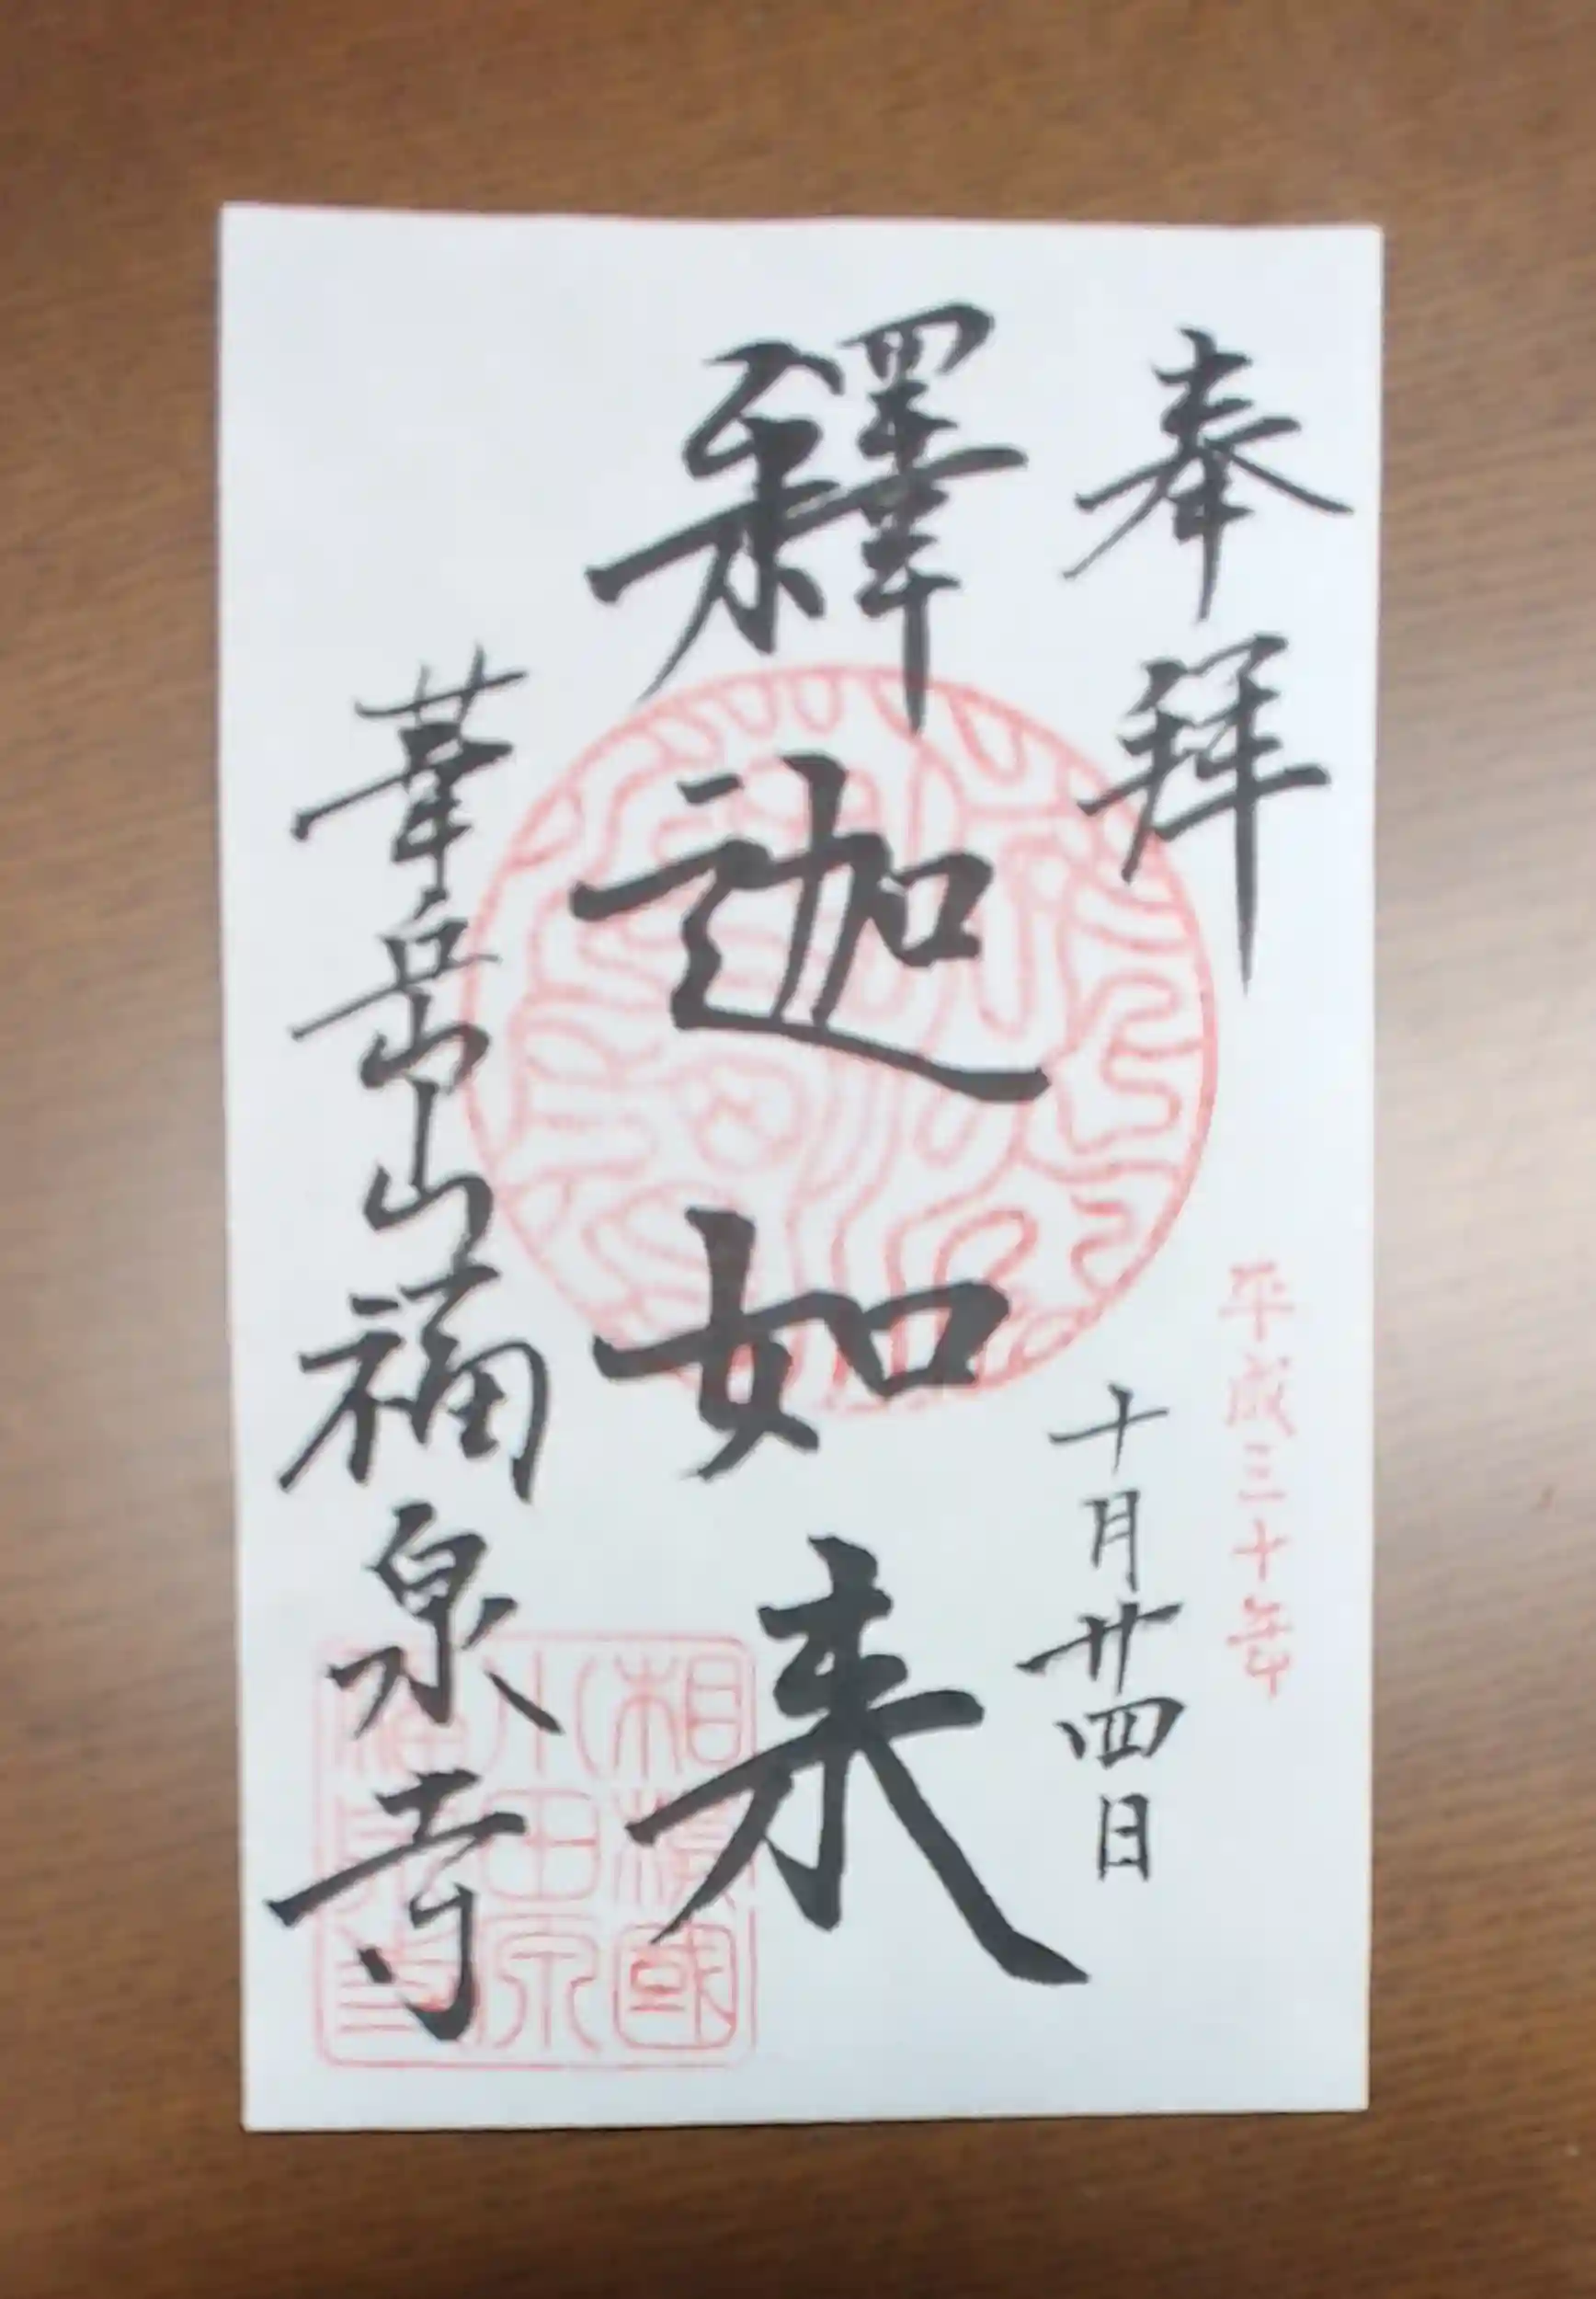 奉拝
平成三十年
十月廿四日
釋迦如来
華岳山福泉寺
相模國
小田原
福泉寺